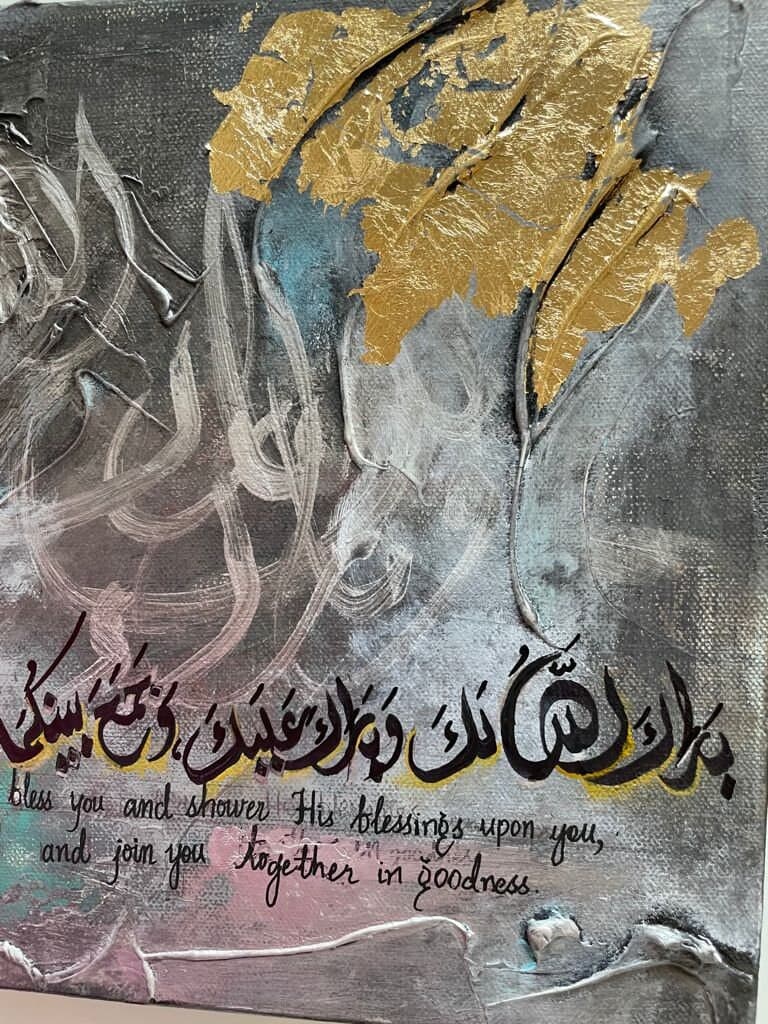 بَارَكَ اللّٰهُ لَكَ وَبَارَكَ عَلَيْكَ وَجَمَعَ بَيْنَكُمَا
bless you and shower His blessings upon you,
and join you together in goodness.